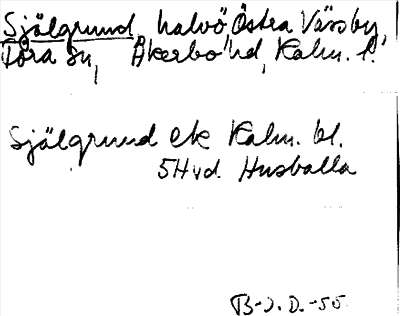 Själgrund, halvö, Östra Vässby,
Tora sn, Åkerbo hd, Kalm. l.
Själgrund ek Kalm. bl.
5Hvd. Husballa
B-J. D. -55.